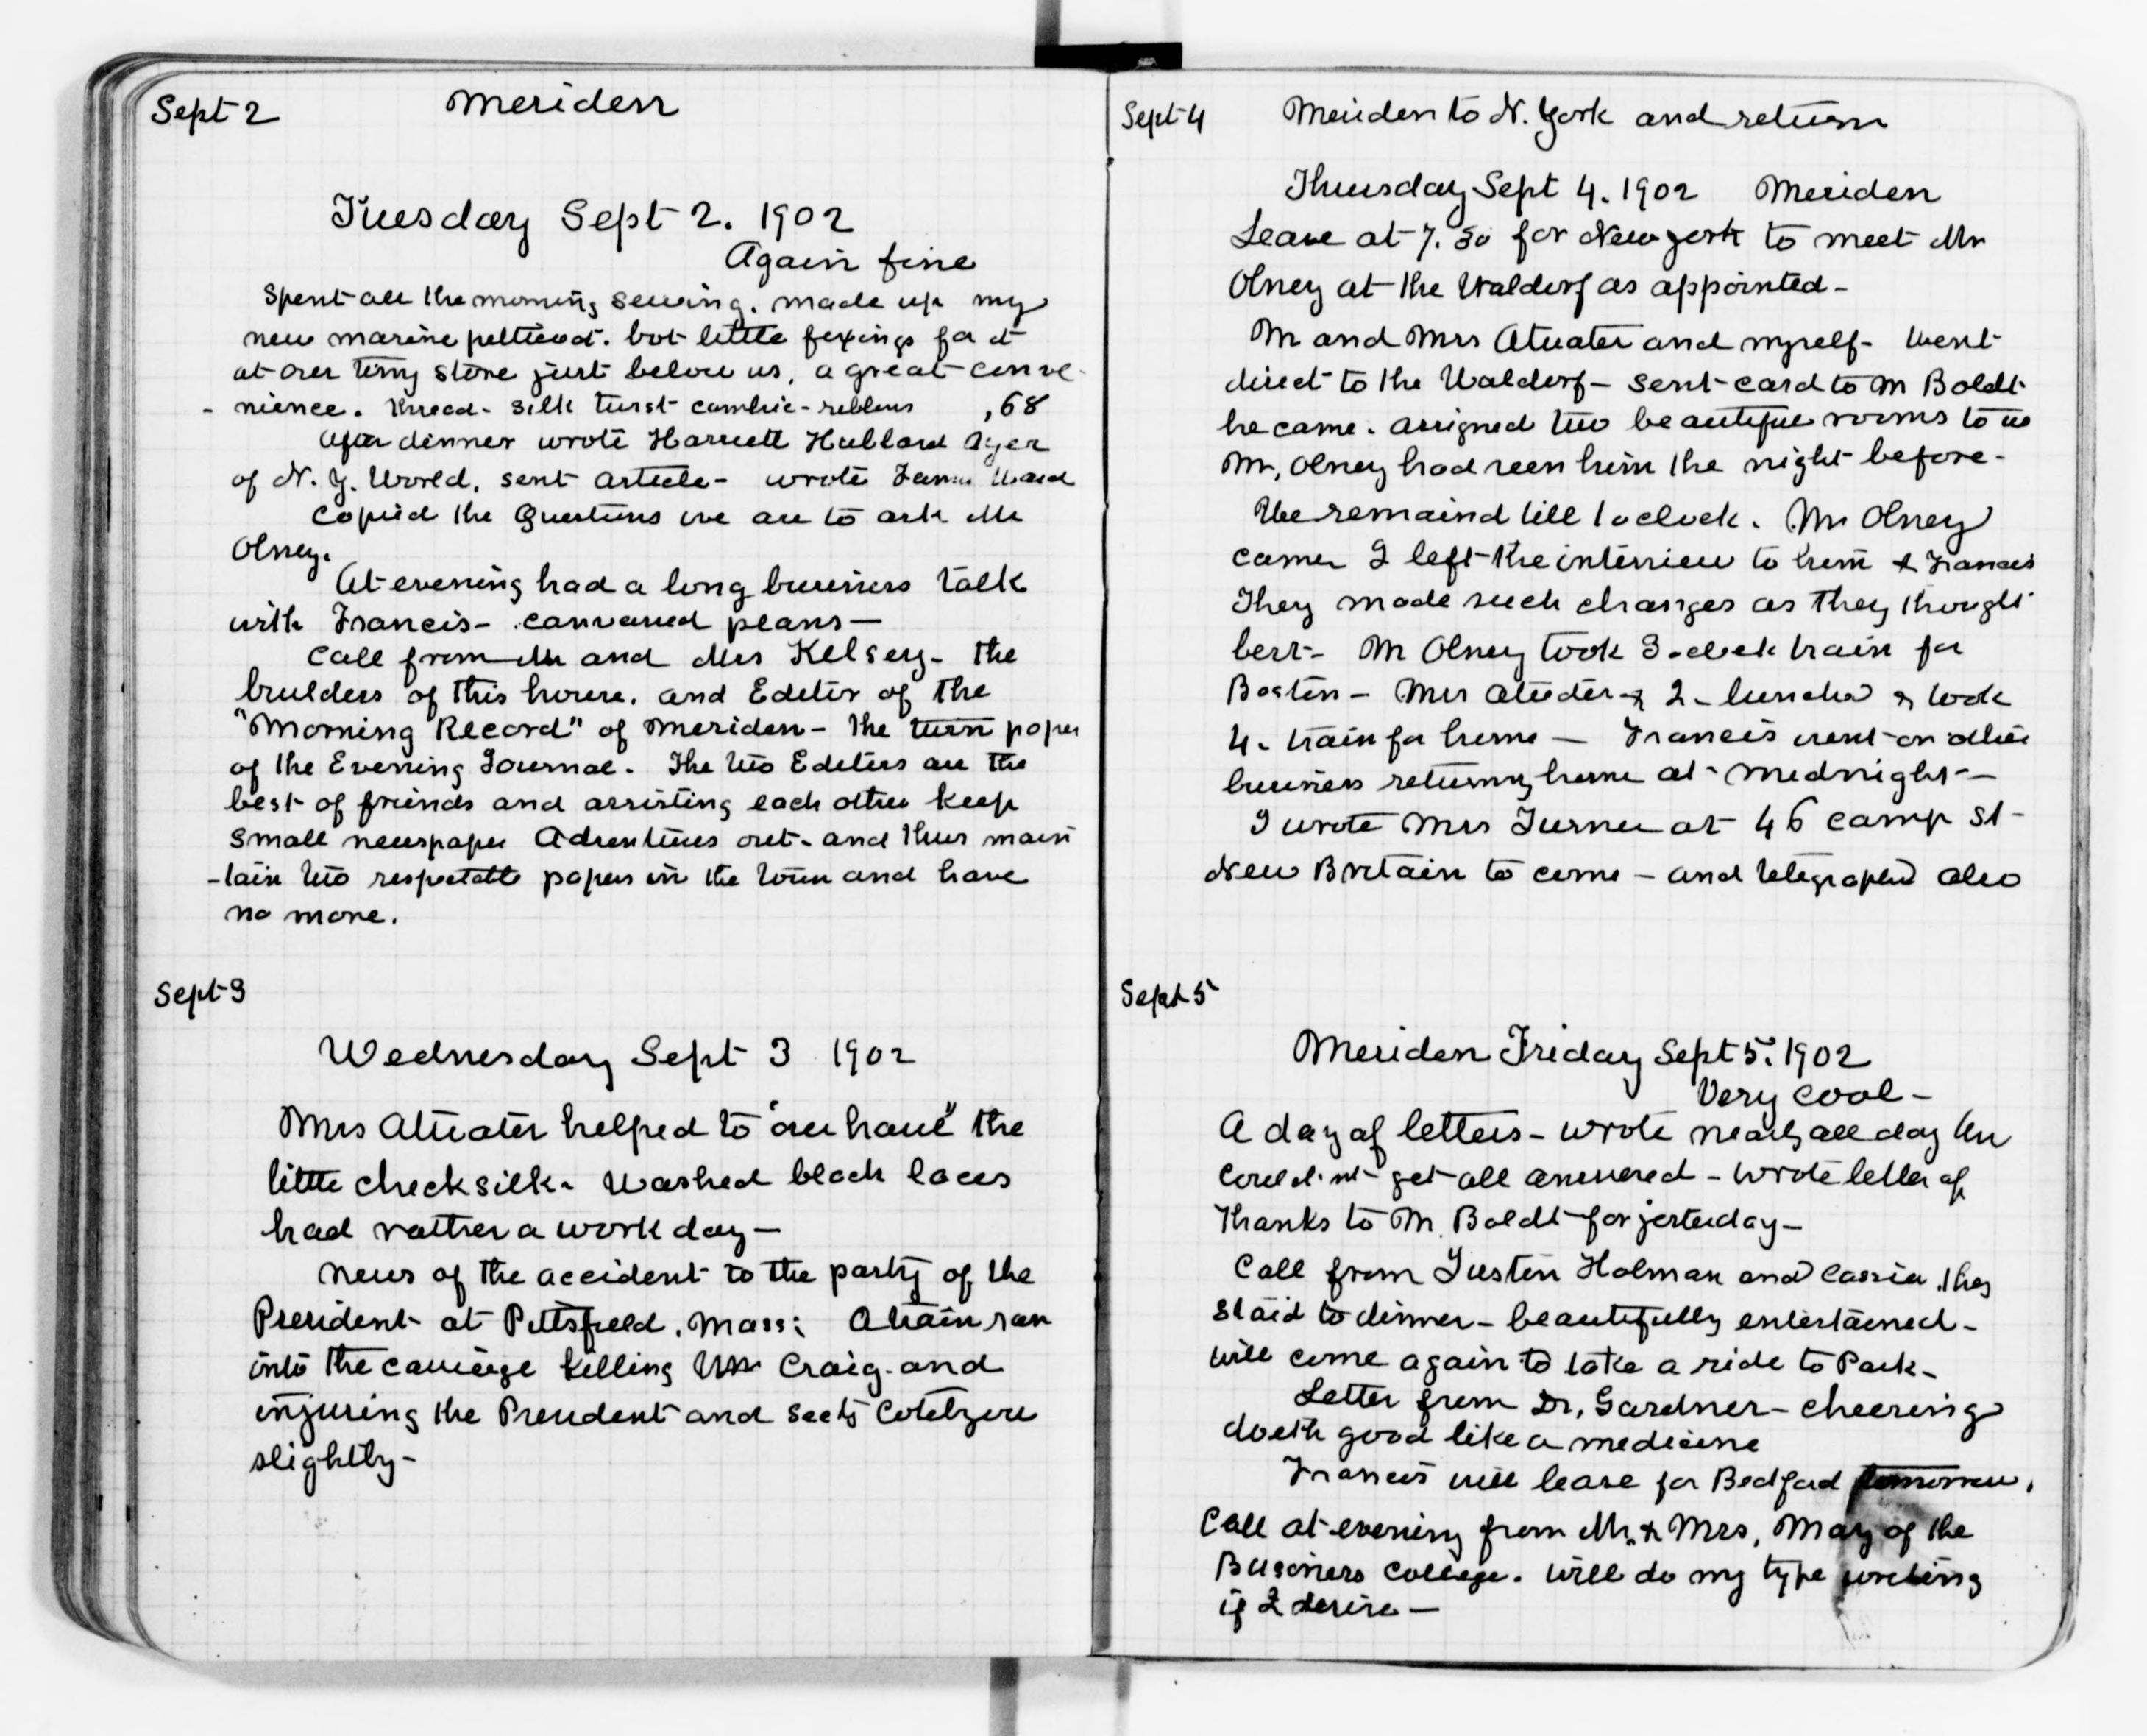 Sept 2
Meriden
Tuesday Sept 2. 1902
Again fine
Spent all the morning sewing. made up my
new marine petticoat. bot little fixings for it
at our tiny store just below us, a great conve-
- nience. thread - silk twist cambric - ribbons ,68
After dinner wrote Harriett Hubbard Ayer
of N. Y. World. sent article - wrote Ward
Copied the Questions we are to ask Mr
Olney.
At evening had a long business talk
with Francis - canvassed plans —
Call from Mr and Mrs Kelsey - the
builders of this house. and Editor of the
"Morning Record" of Meriden - the twin paper
of the Evening Journal. The two Editors are the
best of friends and assisting each other keep
small newspaper Adventures out - and thus main
- tain two respectable papers in the town and have
no more.
Sept 3
Wednesday Sept 3 1902
Mrs Atwater helped to "over haul" the
little check silk - Washed black laces
had rather a work day —
News of the accident to the party of the
President at Pittsfield, Mass; A train ran
into the carriage killing Craig - and
injuring the President and Secty
slightly -
Sept 4
Meriden to N. York and return
Thursday Sept 4. 1902 Meriden
Leave at 7.30 for New york to meet Mr
Olney at the Waldorf as appointed -
Mr and Mrs Atwater and myself - Went
direct to the Waldorf - sent card to Mr Boldt
he came. assigned two beautiful rooms to us
Mr. Olney had seen him the night before -
We remaind till 1 oclock. Mr Olney
came I left the interview to him & Francis
They made such changes as they thought
best - Mr Olney took 3 - oclock train for
Boston - Mrs Atwater & I - lunched & took
4 - train for home — Francis went on other
business returning home at midnight —
I wrote Mrs Turner at 46 Camp St -
New Britain to come - and telegraphed also
Sept 5
Meriden Friday Sept 5. 1902
Very cool -
A day of letters - wrote nearly all day but
could.nt get all answered - wrote letter of
thanks to Mr. Boldt for yesterday -
Call from Justin Holman and Cassia. they
staid to dinner - beautifully entertained -
will come again to take a ride to Park -
Letter from Dr. Gardner - cheering
doeth good like a medicine
Francis will leave for Bedford tomorrow.
Call at evening from Mr. & Mrs. May of the
Business College. will do my type writing
if I desire —